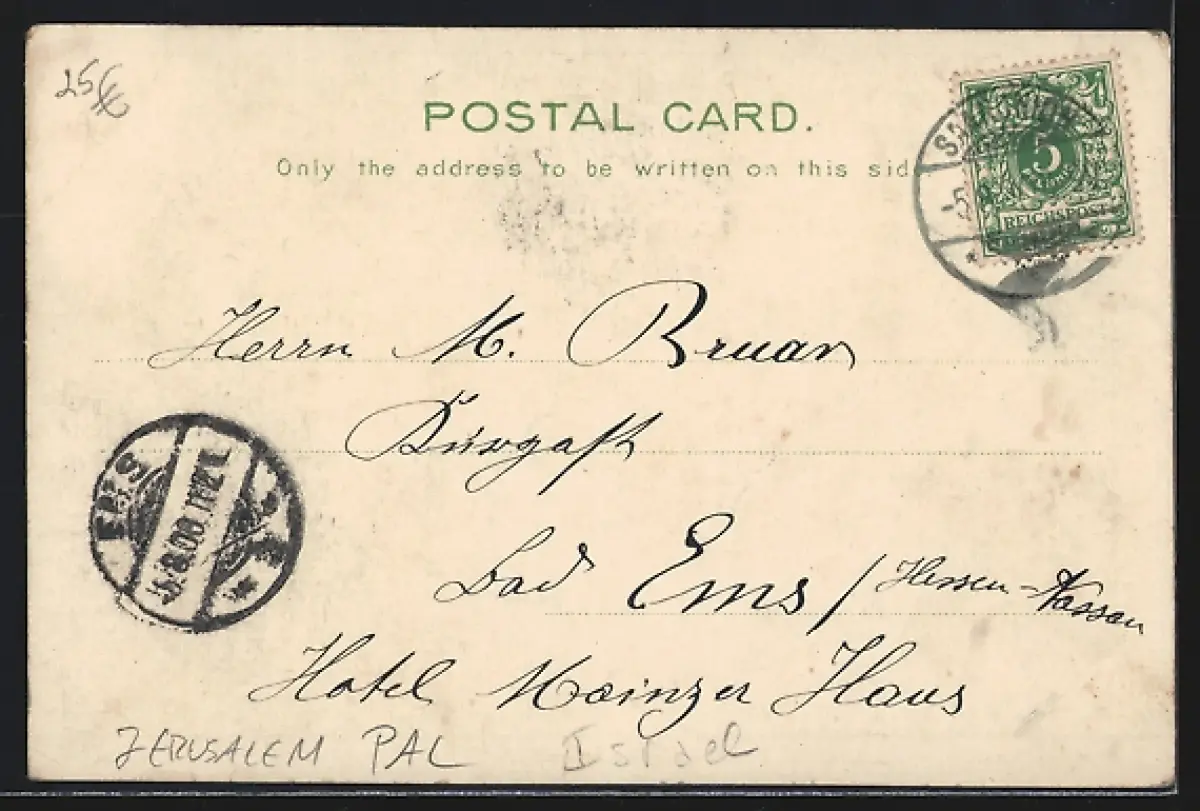 25
POSTAL CARD.
Only the address to be written on this sid
5
REICHSPOST
Herrn M. Bruan
Kurgast
Bad Ems / Hessen-Nassau
Hotel Mainzer Haus
EMS
5/8.00.
JERUSALEM PAL Israel